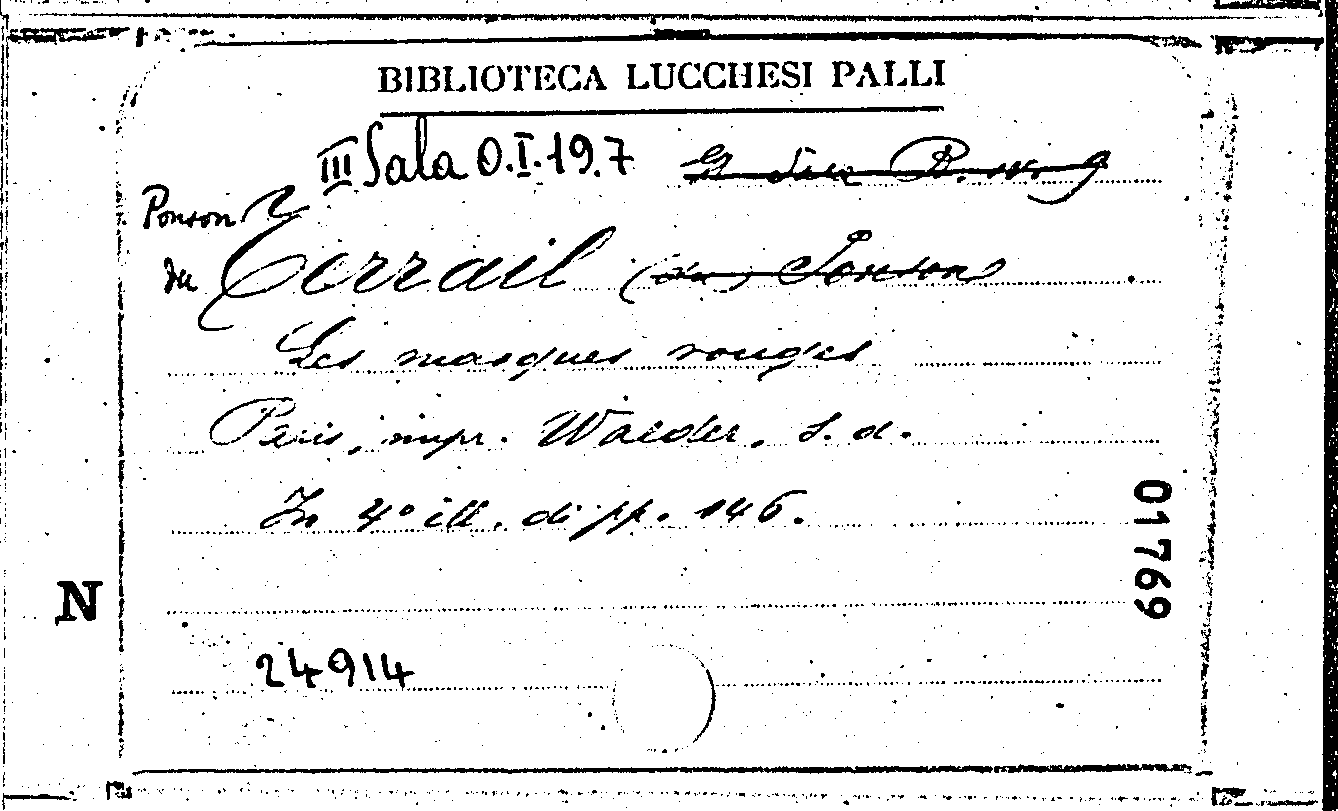 BIBLIOTECA LUCCHESI PALLI
III Sala O.I.19.7
Ponson
du Terrail (du) Ponson
Les masques rouges
Paris, impr. Walder, s. d.
In 4° ill. di pp. 146.
01769
N
24914